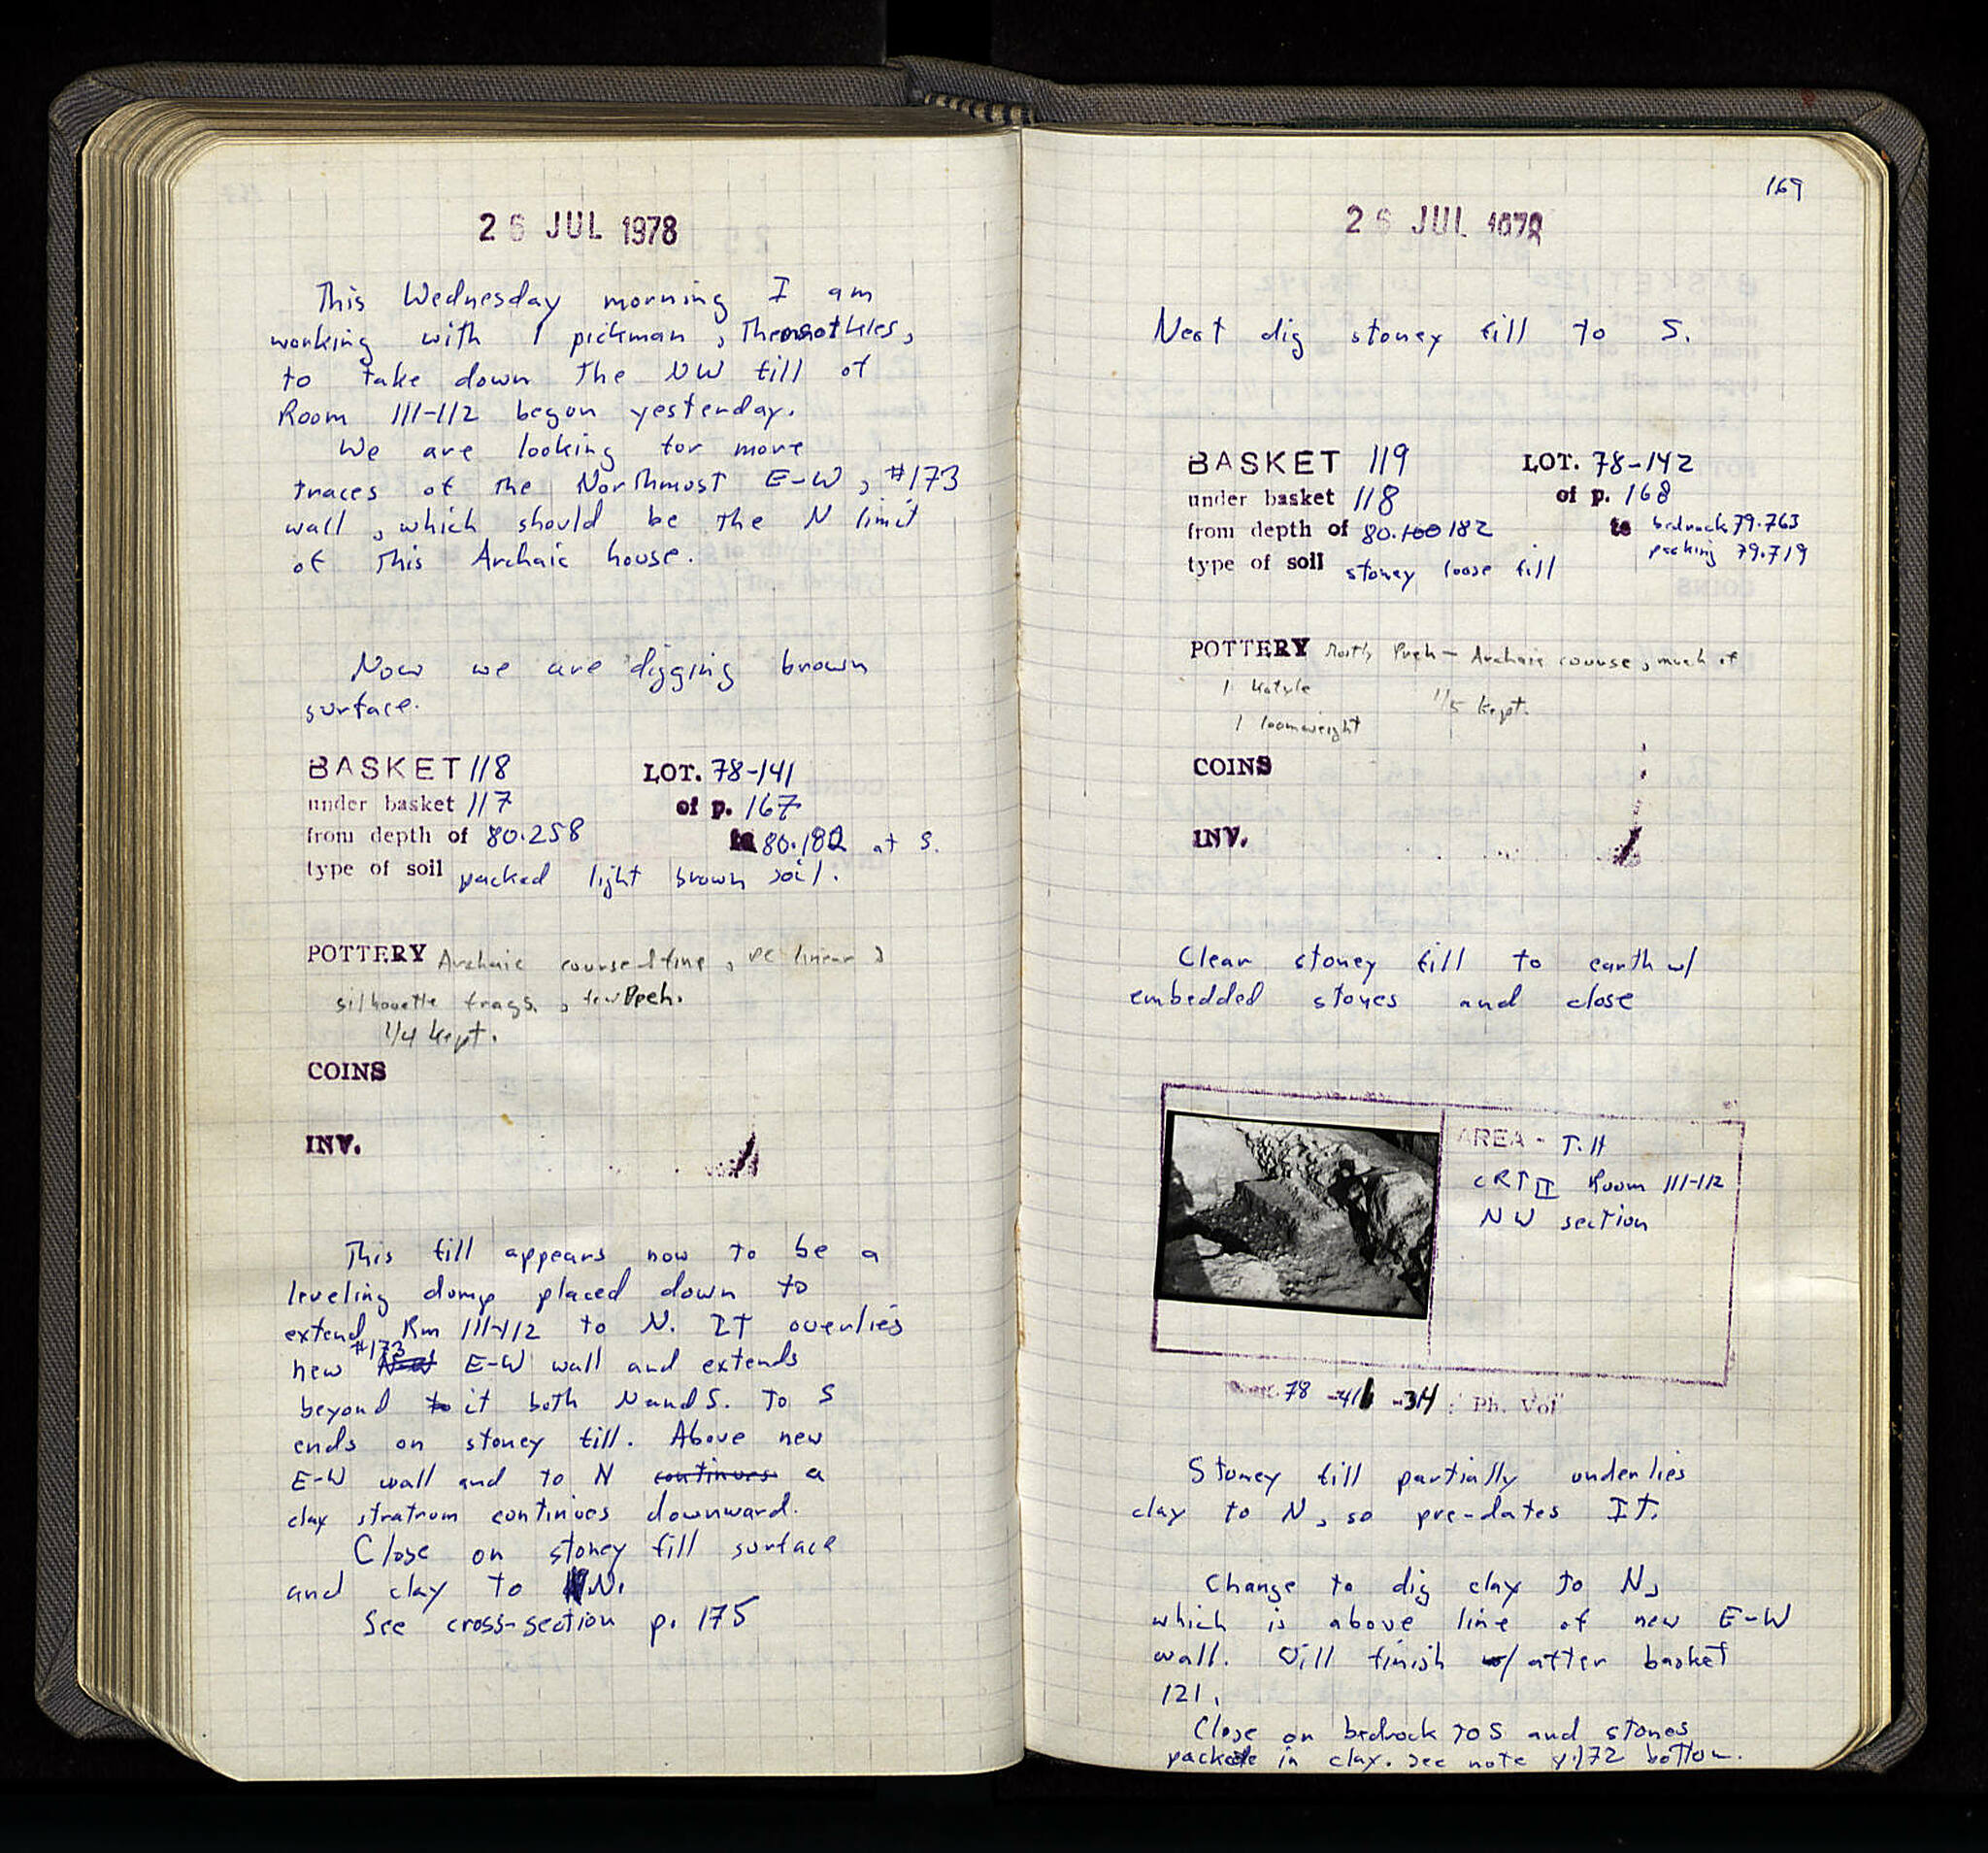 26 JUL 1978
This Wednesday morning I am
working with 1 pickman, Themistokles,
to take down the NW fill of
Room 111-112 begun yesterday.
We are looking for more
traces of the Northmost E-W, #173
wall, which should be the N limit
of this Archaic house.
Now we are digging brown
surface.
BASKET 118 LOT. 78-141
under basket 117 of p. 167
from depth of 80.258 to 80.182 at S.
type of soil packed light brown soil.
POTTERY Archaic course & fine, PC linear &
silhouette frags., few Preh.
1/4 kept.
COINS
INV.
This fill appears now to be a
leveling dump placed down to
extend Rm 111-112 to N. It overlies
new #173 E-W wall and extends
beyond it both N and S. To S
ends on stoney fill. Above new
E-W wall and to N continues a
clay stratrum continues downward.
Close on stoney fill surface
and clay to N.
See cross-section p. 175
169
26 JUL 1978
Next dig stoney fill to S.
BASKET 119 LOT. 78-142
under basket 118 of p. 168
from depth of 80.182 to bedrock 79.763
packing 79.719
type of soil stoney loose fill
POTTERY Mostly Preh - Archaic course, much of
1 kotyle 1/5 kept.
1 loomweight
COINS
INV.
Clear stoney fill to earth w/
embedded stones and close
AREA - T.H
CRT II Room 111-112
NW section
78 -41 -34 Ph. Vol
Stoney fill partially underlies
clay to N, so pre-dates It.
Change to dig clay to N,
which is above line of new E-W
wall. Will finish after basket
121.
Close on bedrock to S and stones
packed in clay. See note p. 172 bottom.